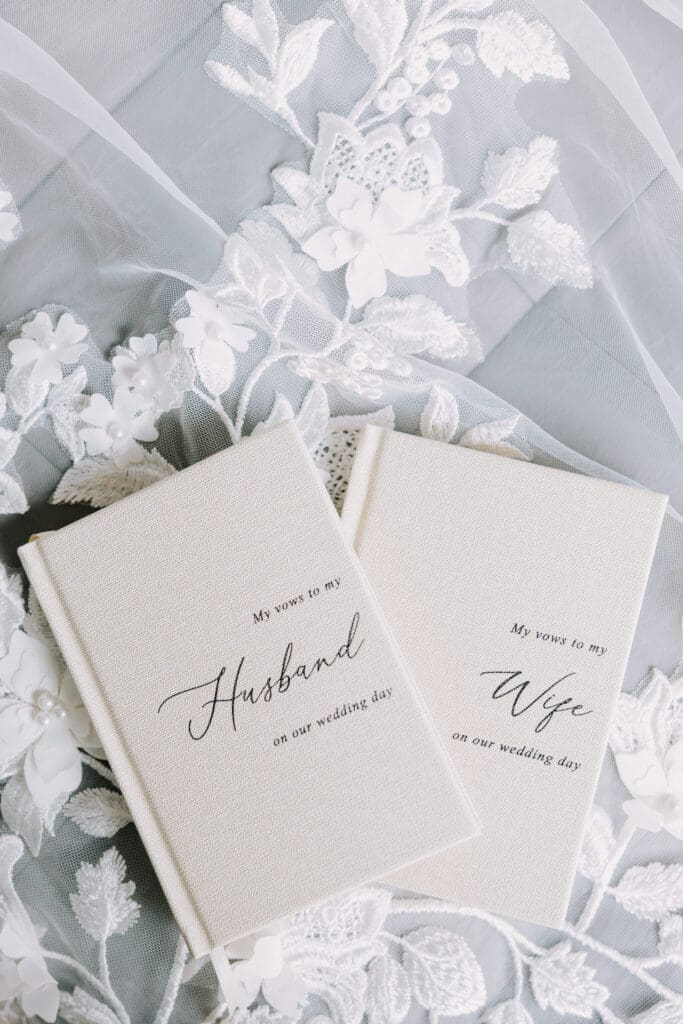 My vows to my
Husband
on our wedding day
My vows to my
Wife
on our wedding day